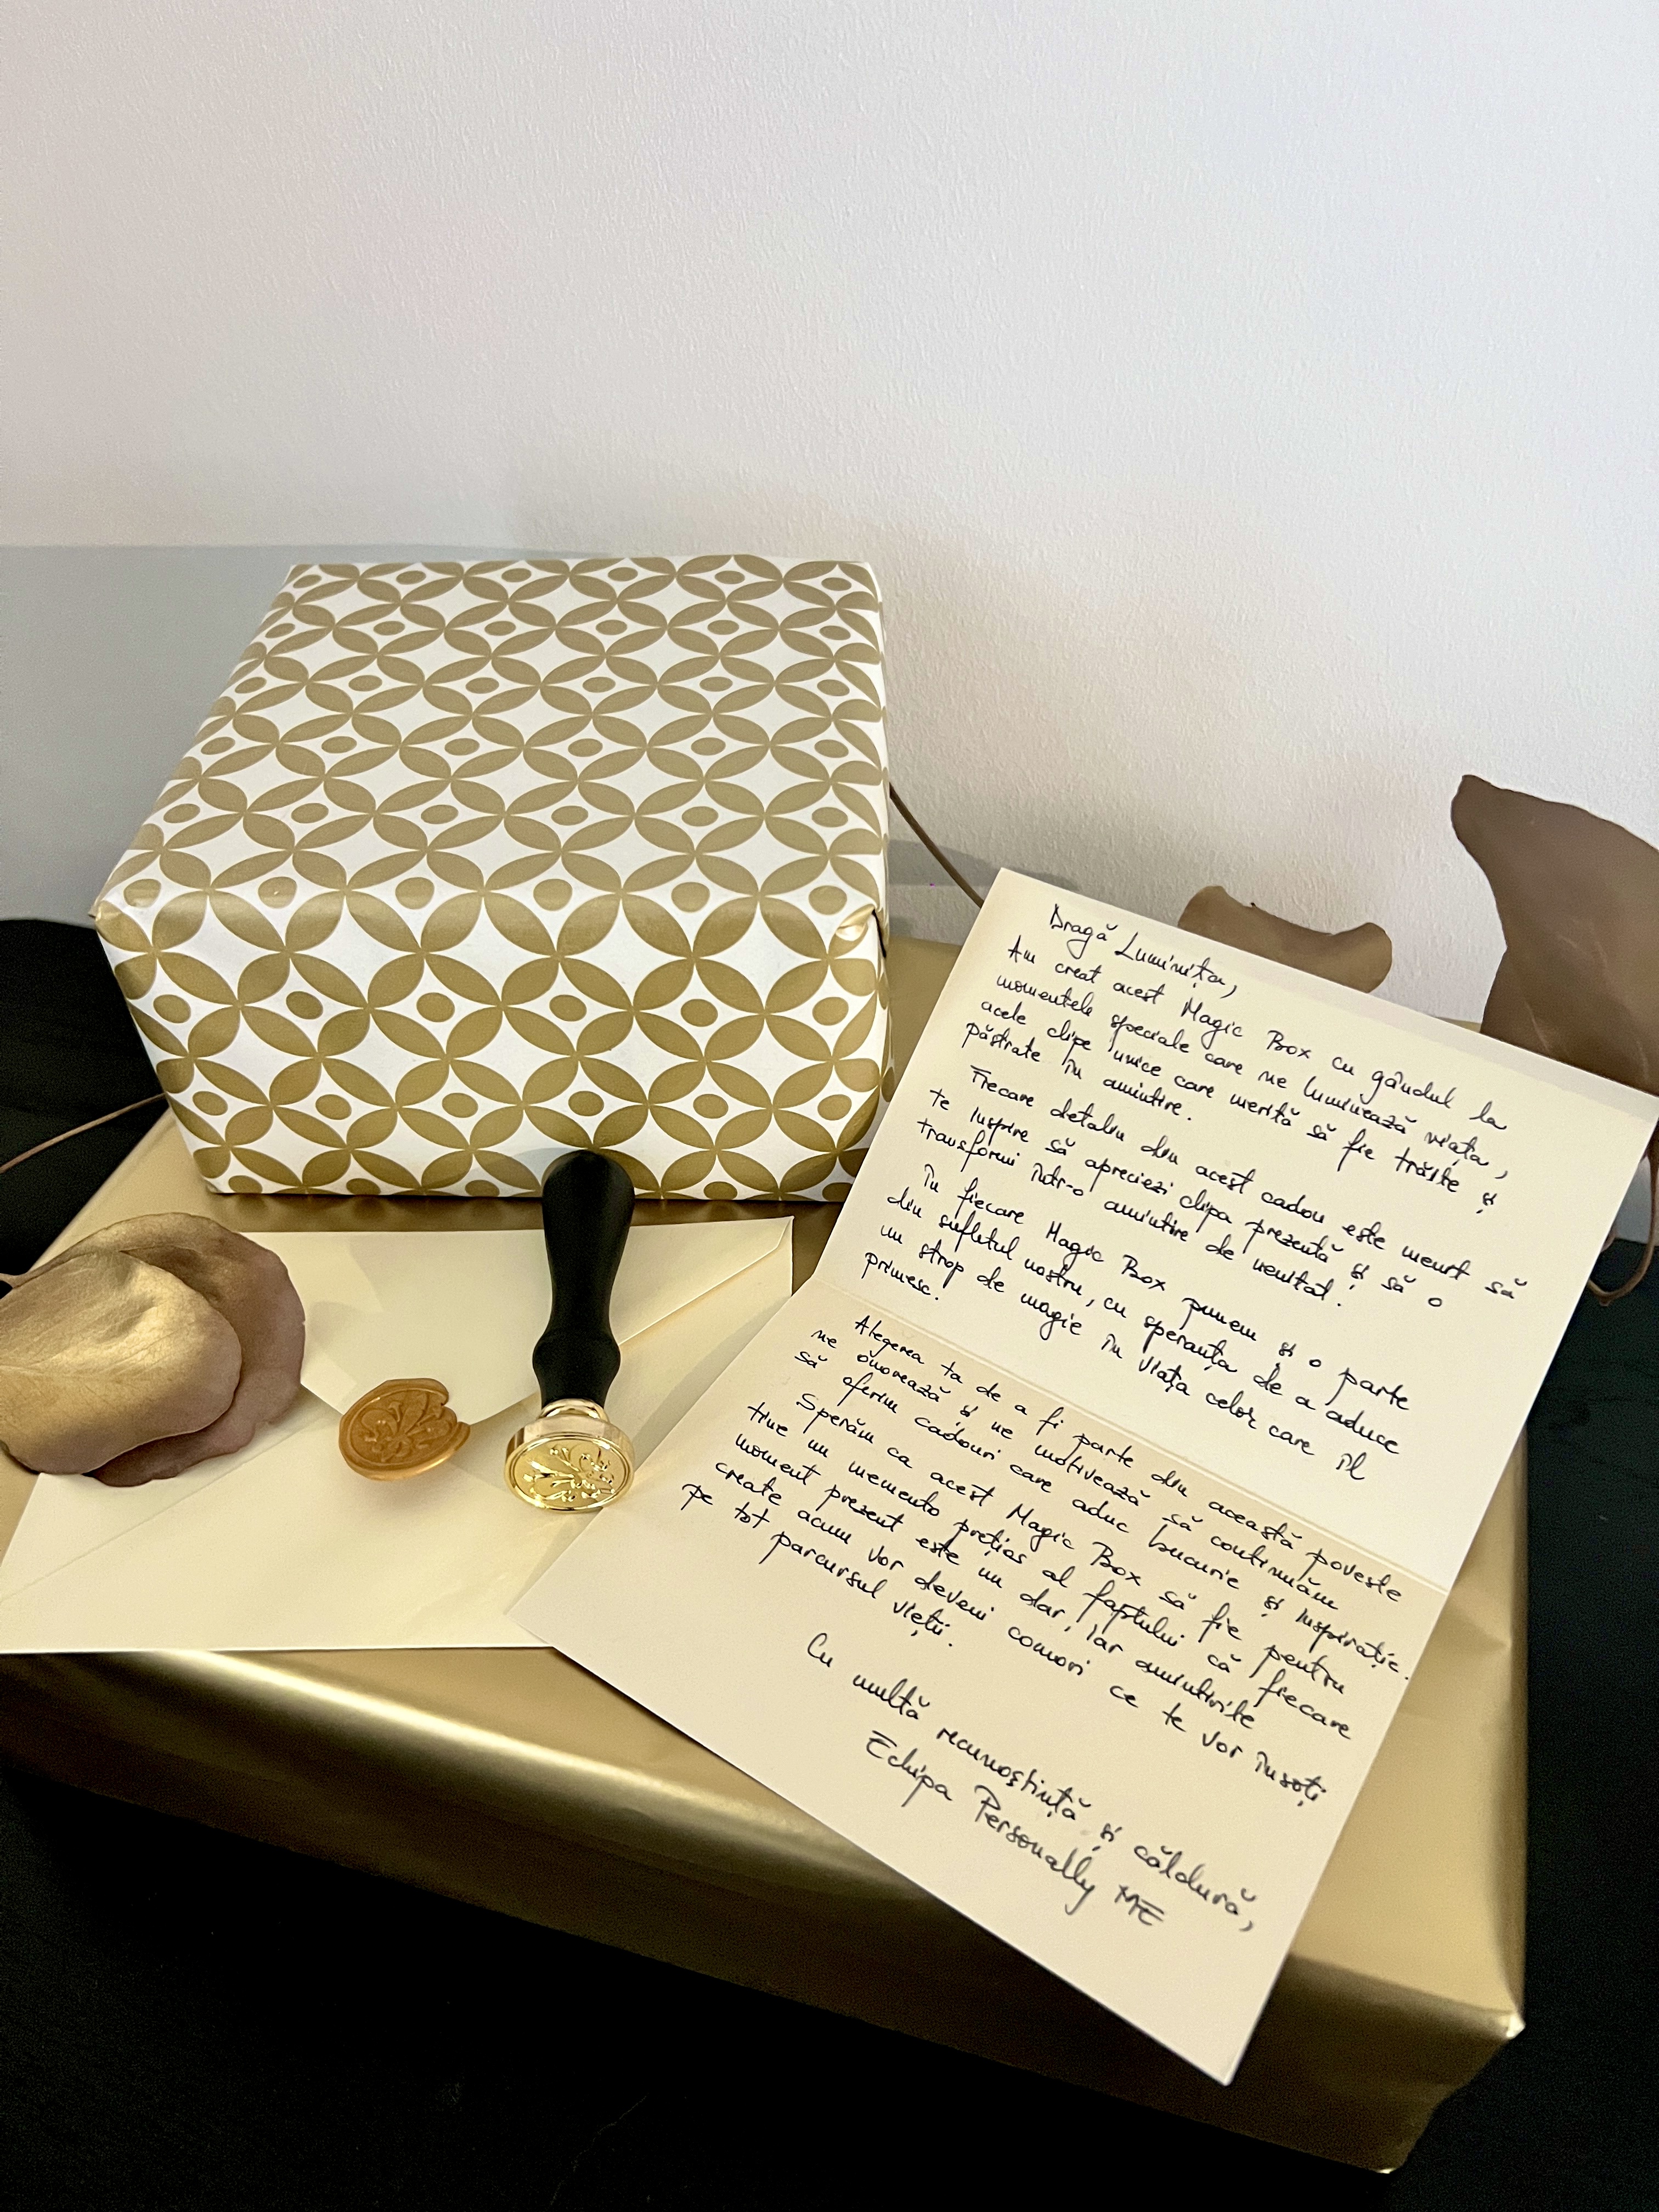 Dragă Luminița,
Am creat acest Magic Box cu gândul la
momentele speciale care ne luminează viața,
acele clipe unice care merită să fie trăite și
păstrate în amintire.
Fiecare detaliu din acest cadou este menit să
te inspire să apreciezi clipa prezentă și să o
transformi într-o amintire de neuitat.
În fiecare Magic Box punem și o parte
din sufletul nostru, cu speranța de a aduce
un strop de magie în viața celor care îl
primesc.
Alegerea ta de a fi parte din această poveste
ne onorează și ne motivează să continuăm
să oferim cadouri care aduc bucurie și inspirație.
Sperăm ca acest Magic Box să fie pentru
tine un memento prețios al faptului că fiecare
moment prezent este un dar, iar amintirile
create acum vor deveni comori ce te vor însoți
pe tot parcursul vieții.
Cu multă recunoștință și căldură,
Echipa Personally ME